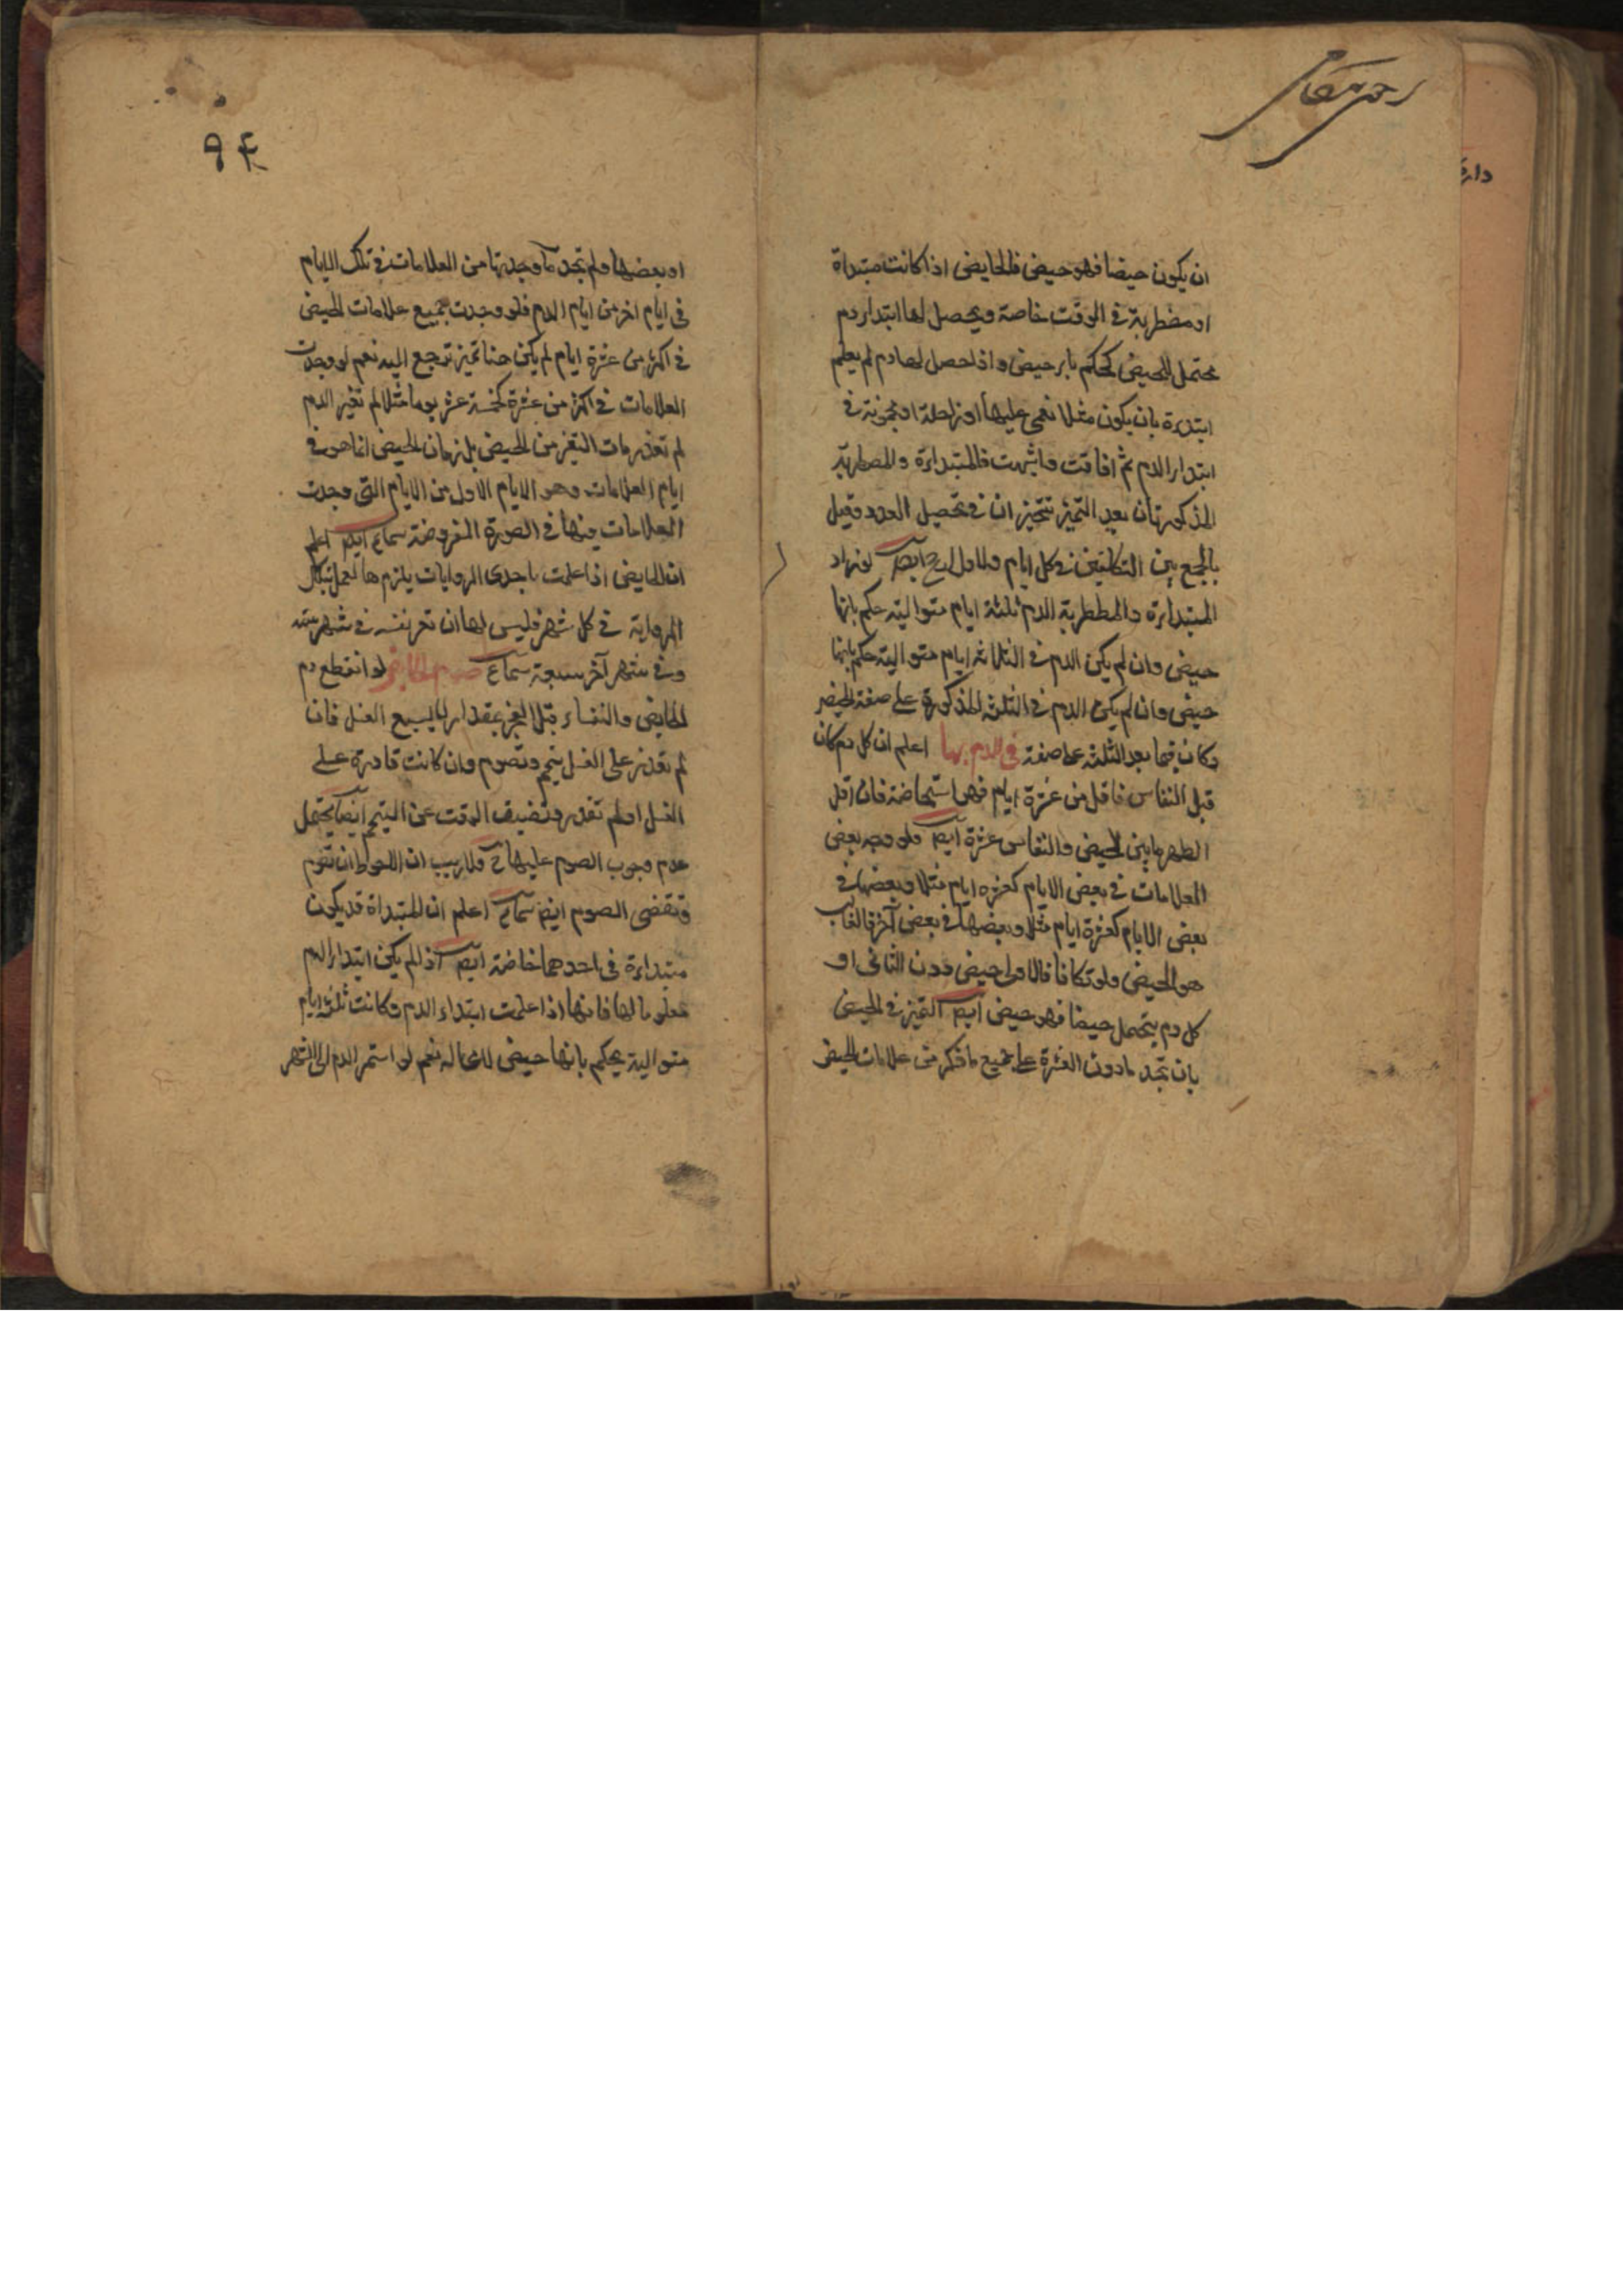 ان يكون حيضا فهو حيض فالحايض اذا كانت مبتداة
او مضطربة في الوقت خاصة ويحصل لها ابتدا دم
محتمل للحيض يحكم بانه حيض واذا حصل لها دم لم يعلم
ابتداءه بان يكون مثلا نغمى عليها او مجنونة في
ابتداء الدم ثم افاقت فالمبتداءة والمضطربة
المذكورتان بعد التميز تتحيز ان في تحصيل العدد وقيل
بالجمع بين التكليفين في كل ايام والاول ارجح ايضا
المبتداءة والمضطربة الدم ثلثة ايام متوالية حكم بانها
حيض وان لم يكن الدم في الثلاثة ايام متوالية حكم بانها
حيض وان لم يكن الدم في الثلثة المذكورة على صفة الحيض
وكان فيما بعد الثلثة على صفة في الدم بها اعلم ان كل دم كان
قبل النفاس فاقل من عشرة ايام فهو استحاضة فان اقل
الطهر مابين الحيض والنفاس عشرة ايضا فلو وجد بعض
العلامات في بعض الايام كعشرة ايام مثلا وبعضها في
بعض الايام كعشرة ايام مثلا وبعضها في بعض آخر فالغالب
هو الحيض ولو تكافا فالاول حيض دون الثاني او
كل دم يحتمل حيضا فهو حيض ايضا التميز في الحيض
بان تجد مادون العشرة على جميع ما ذكر من علامات الحيض
٩٤
او بعضها ولم تجد ما وجدتها من العلامات في تلك الايام
في ايام اخر من ايام الدم فلو وجدت جميع علامات الحيض
في اكثر من عشرة ايام لم يكن هنا تميز ترجع اليه نعم لو وجدت
العلامات في اكثر من عشرة كخمسة عشر يوما مثلا لم تغير الدم
من الحيض بل زمان الحيض انما هو في
ايام العلامات وهو الايام الاول من الايام التي وجدت
العلامات منها في الصورة المفروضة سماع ايضا اعلم
ان الحايض اذا علمت باحدى الروايات يلزمها العمل بتلك
الرواية في كل شهر فليس لها ان في شهر ستة
وفي شهر آخر سبعة سماع لو انقطع دم
الحايض والنفساء قبل الفجر بمقدار ليسع الغسل فان
لم تقدر على الغسل تيمم وتصوم وان كانت قادرة على
الغسل او لم تقدر وتضيق الوقت عن التيمم ايضا يحتمل
عدم وجوب الصوم عليها ولا ريب ان الاحوط ان تصوم
وتقضى الصوم ايضا سماع اعلم ان المبتداة قد يكون
مبتداءة في احدهما خاصة ايضا اذا لم يكن ابتداء الدم
معلوما لها فانها اذا علمت ابتداء الدم وكانت ثلثة ايام
متوالية يحكم بانها حيض لامحاله نعم لو استمر الدم الى الشهر